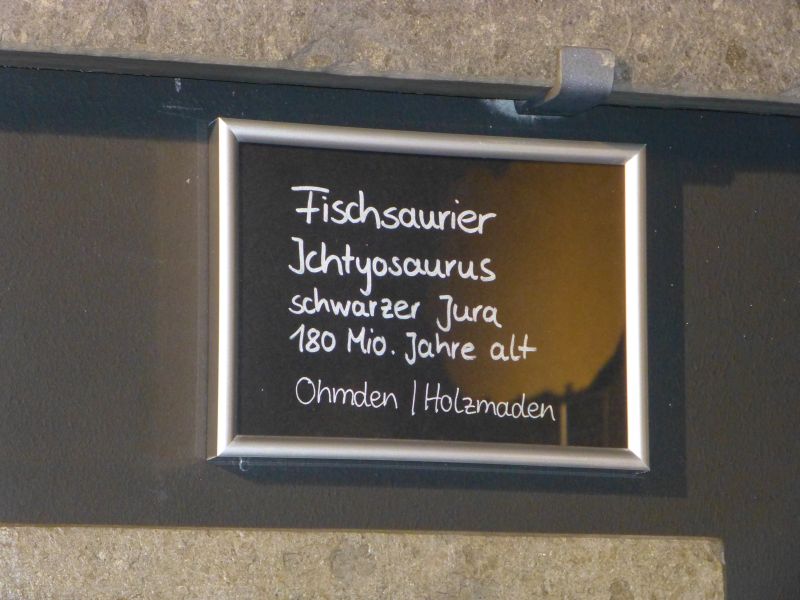 Fischsaurier
Ichtyosaurus
schwarzer Jura
180 Mio. Jahre alt
Ohmden / Holzmaden